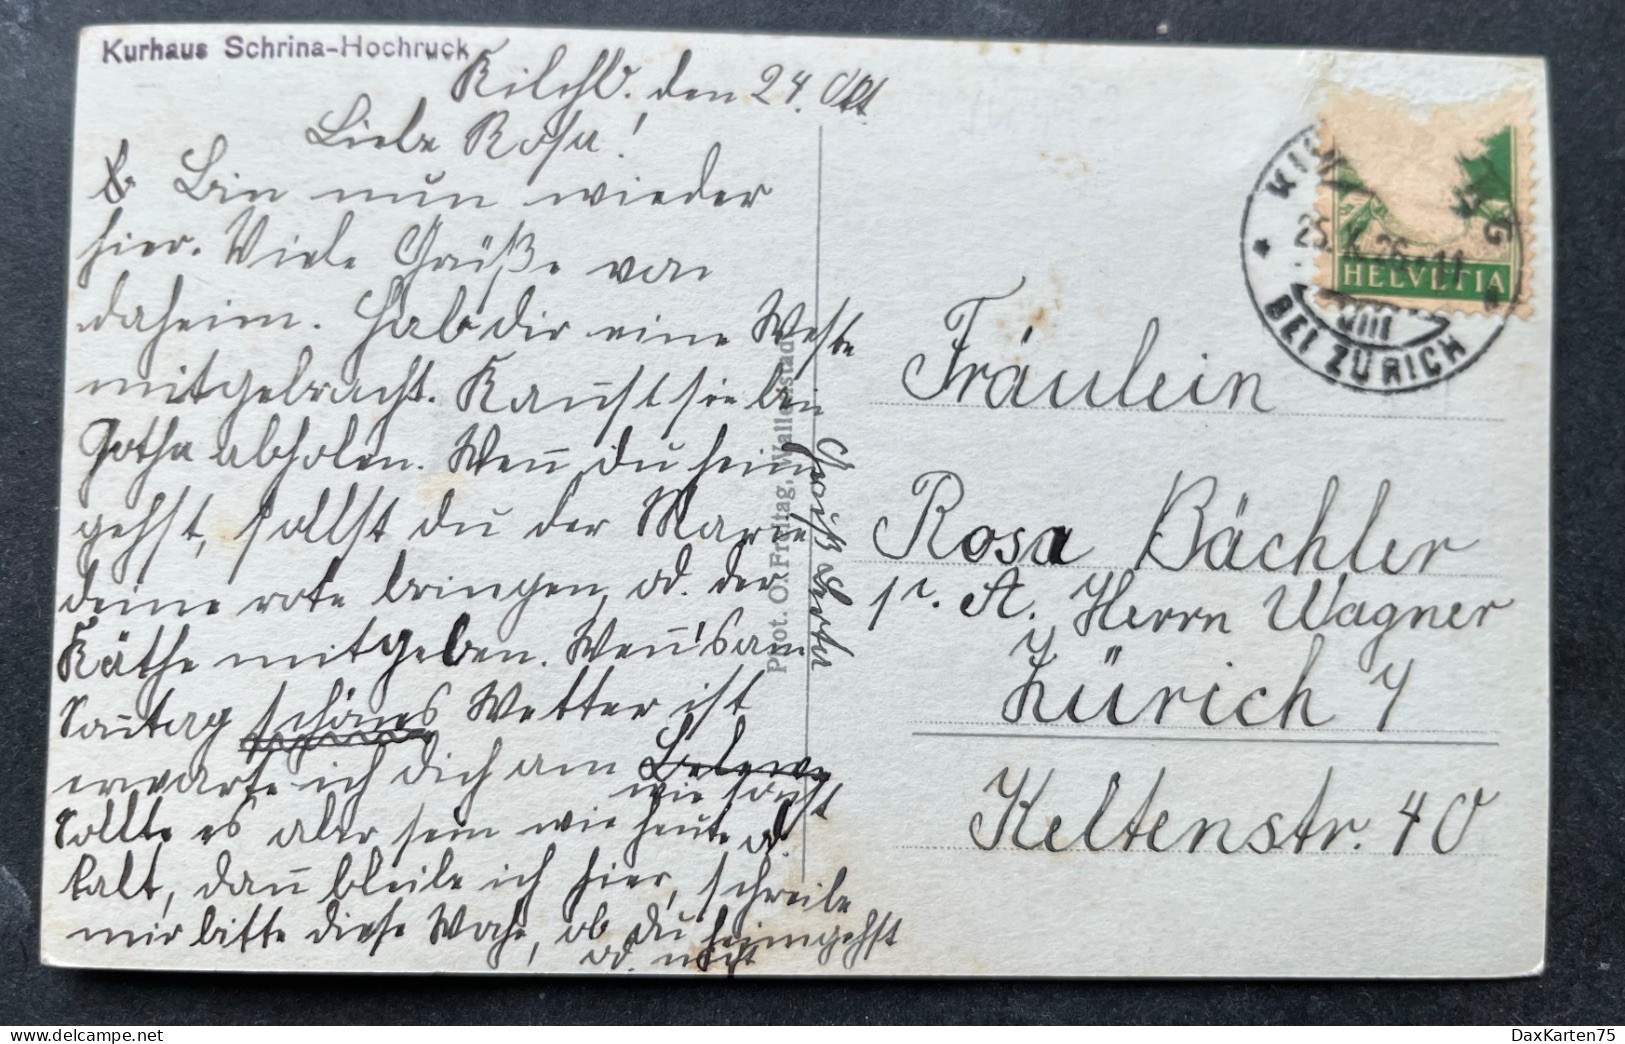 Kurhaus Schrina-Hochruck
Kilchb. den 24. Okt
Liebe Rosa!
Bin nun wieder
hier. Viele Grüße von
daheim. Hab dir eine Weste
mitgebracht. Kannst sie bei
Gotha abholen. Wenn du heim
gehst, sollst du der Marie
deine rote bringen, od. der
Käthe mitgeben. Wenn's am
Sonntag schönes Wetter ist
erwarte ich dich am
wie sonst
Sollte es aber sein wie heute od.
kalt, dann bleibe ich hier, schreibe
mir bitte diese Woche, ob du heimgehst
od. nicht
Gruß Berta
Phot. O. Freitag, Wallenstadt
HELVETIA
25. X. 26 - 11
BEI ZÜRICH
Fräulein
Rosa Bächler
pr. A. Herrn Wagner
Zürich 7
Keltenstr. 40
DaxKarten75